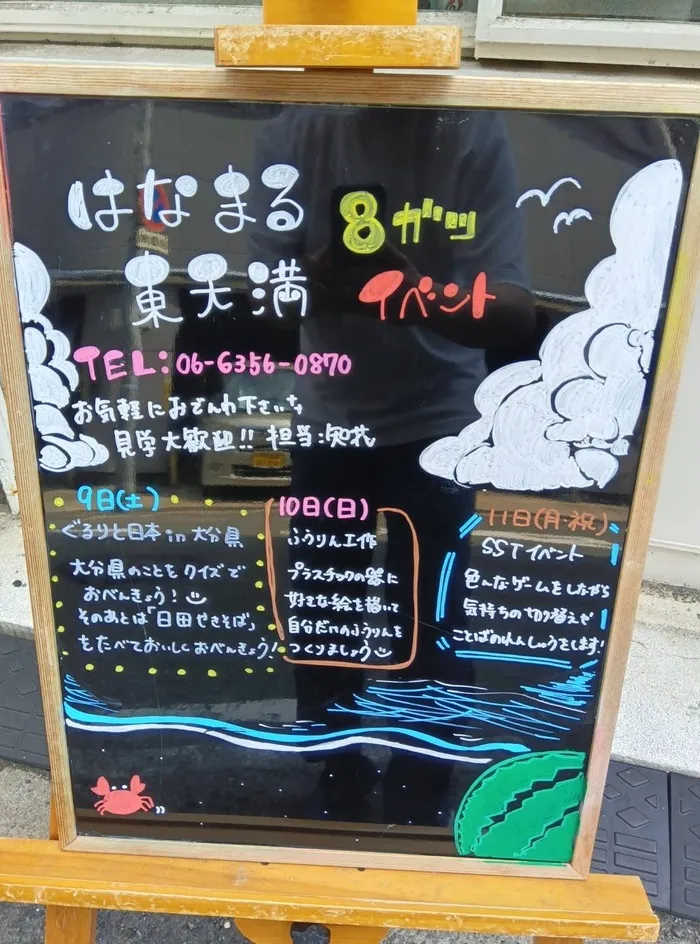 はなまる 8ガツ
東天満 イベント
TEL:06-6356-0870
お気軽におでんわ下さいな
見学大歓迎!! 担当:
9日(土)
ぐるりと日本 in 大分県
大分県のことをクイズで
おべんきょう!
そのあとは「日田やきそば」
もたべておいしくおべんきょう!
10日(日)
ふうりん工作
プラスチックの器に
好きな絵を描いて
自分だけのふうりんを
つくりましょう
11日(月・祝)
SSTイベント
色んなゲームをしながら
気持ちの切り替えや
ことばのれんしゅうをします!